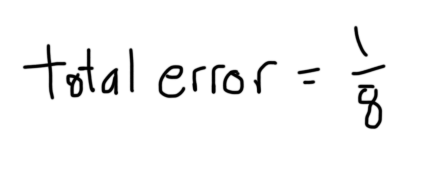 total error = 1/8